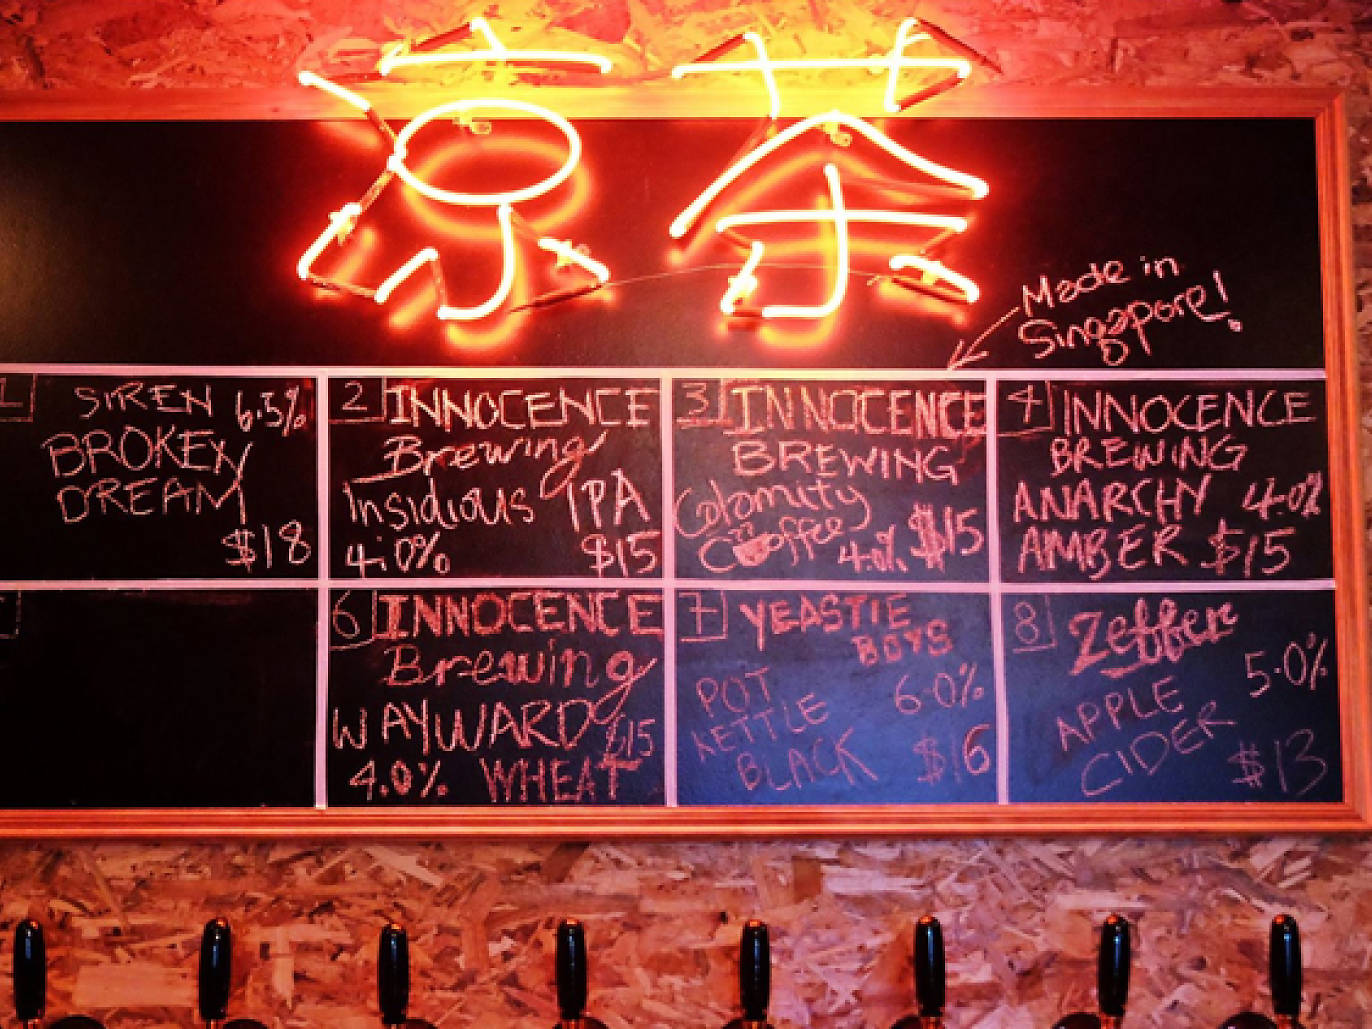 凉茶
Made in
Singapore!
1 SIREN 6.5%
BROKEN
DREAM
$18
2 INNOCENCE
Brewing
Insidious IPA
4.0% $15
3 INNOCENCE
BREWING
Calamity
Coffee 4.0% $15
4 INNOCENCE
BREWING
ANARCHY 4.0%
AMBER $15
6 INNOCENCE
Brewing
WAYWARD $15
4.0% WHEAT
7 YEASTIE
BOYS
POT 6.0%
KETTLE
BLACK $16
8 Zeffer
5.0%
APPLE
CIDER
$13